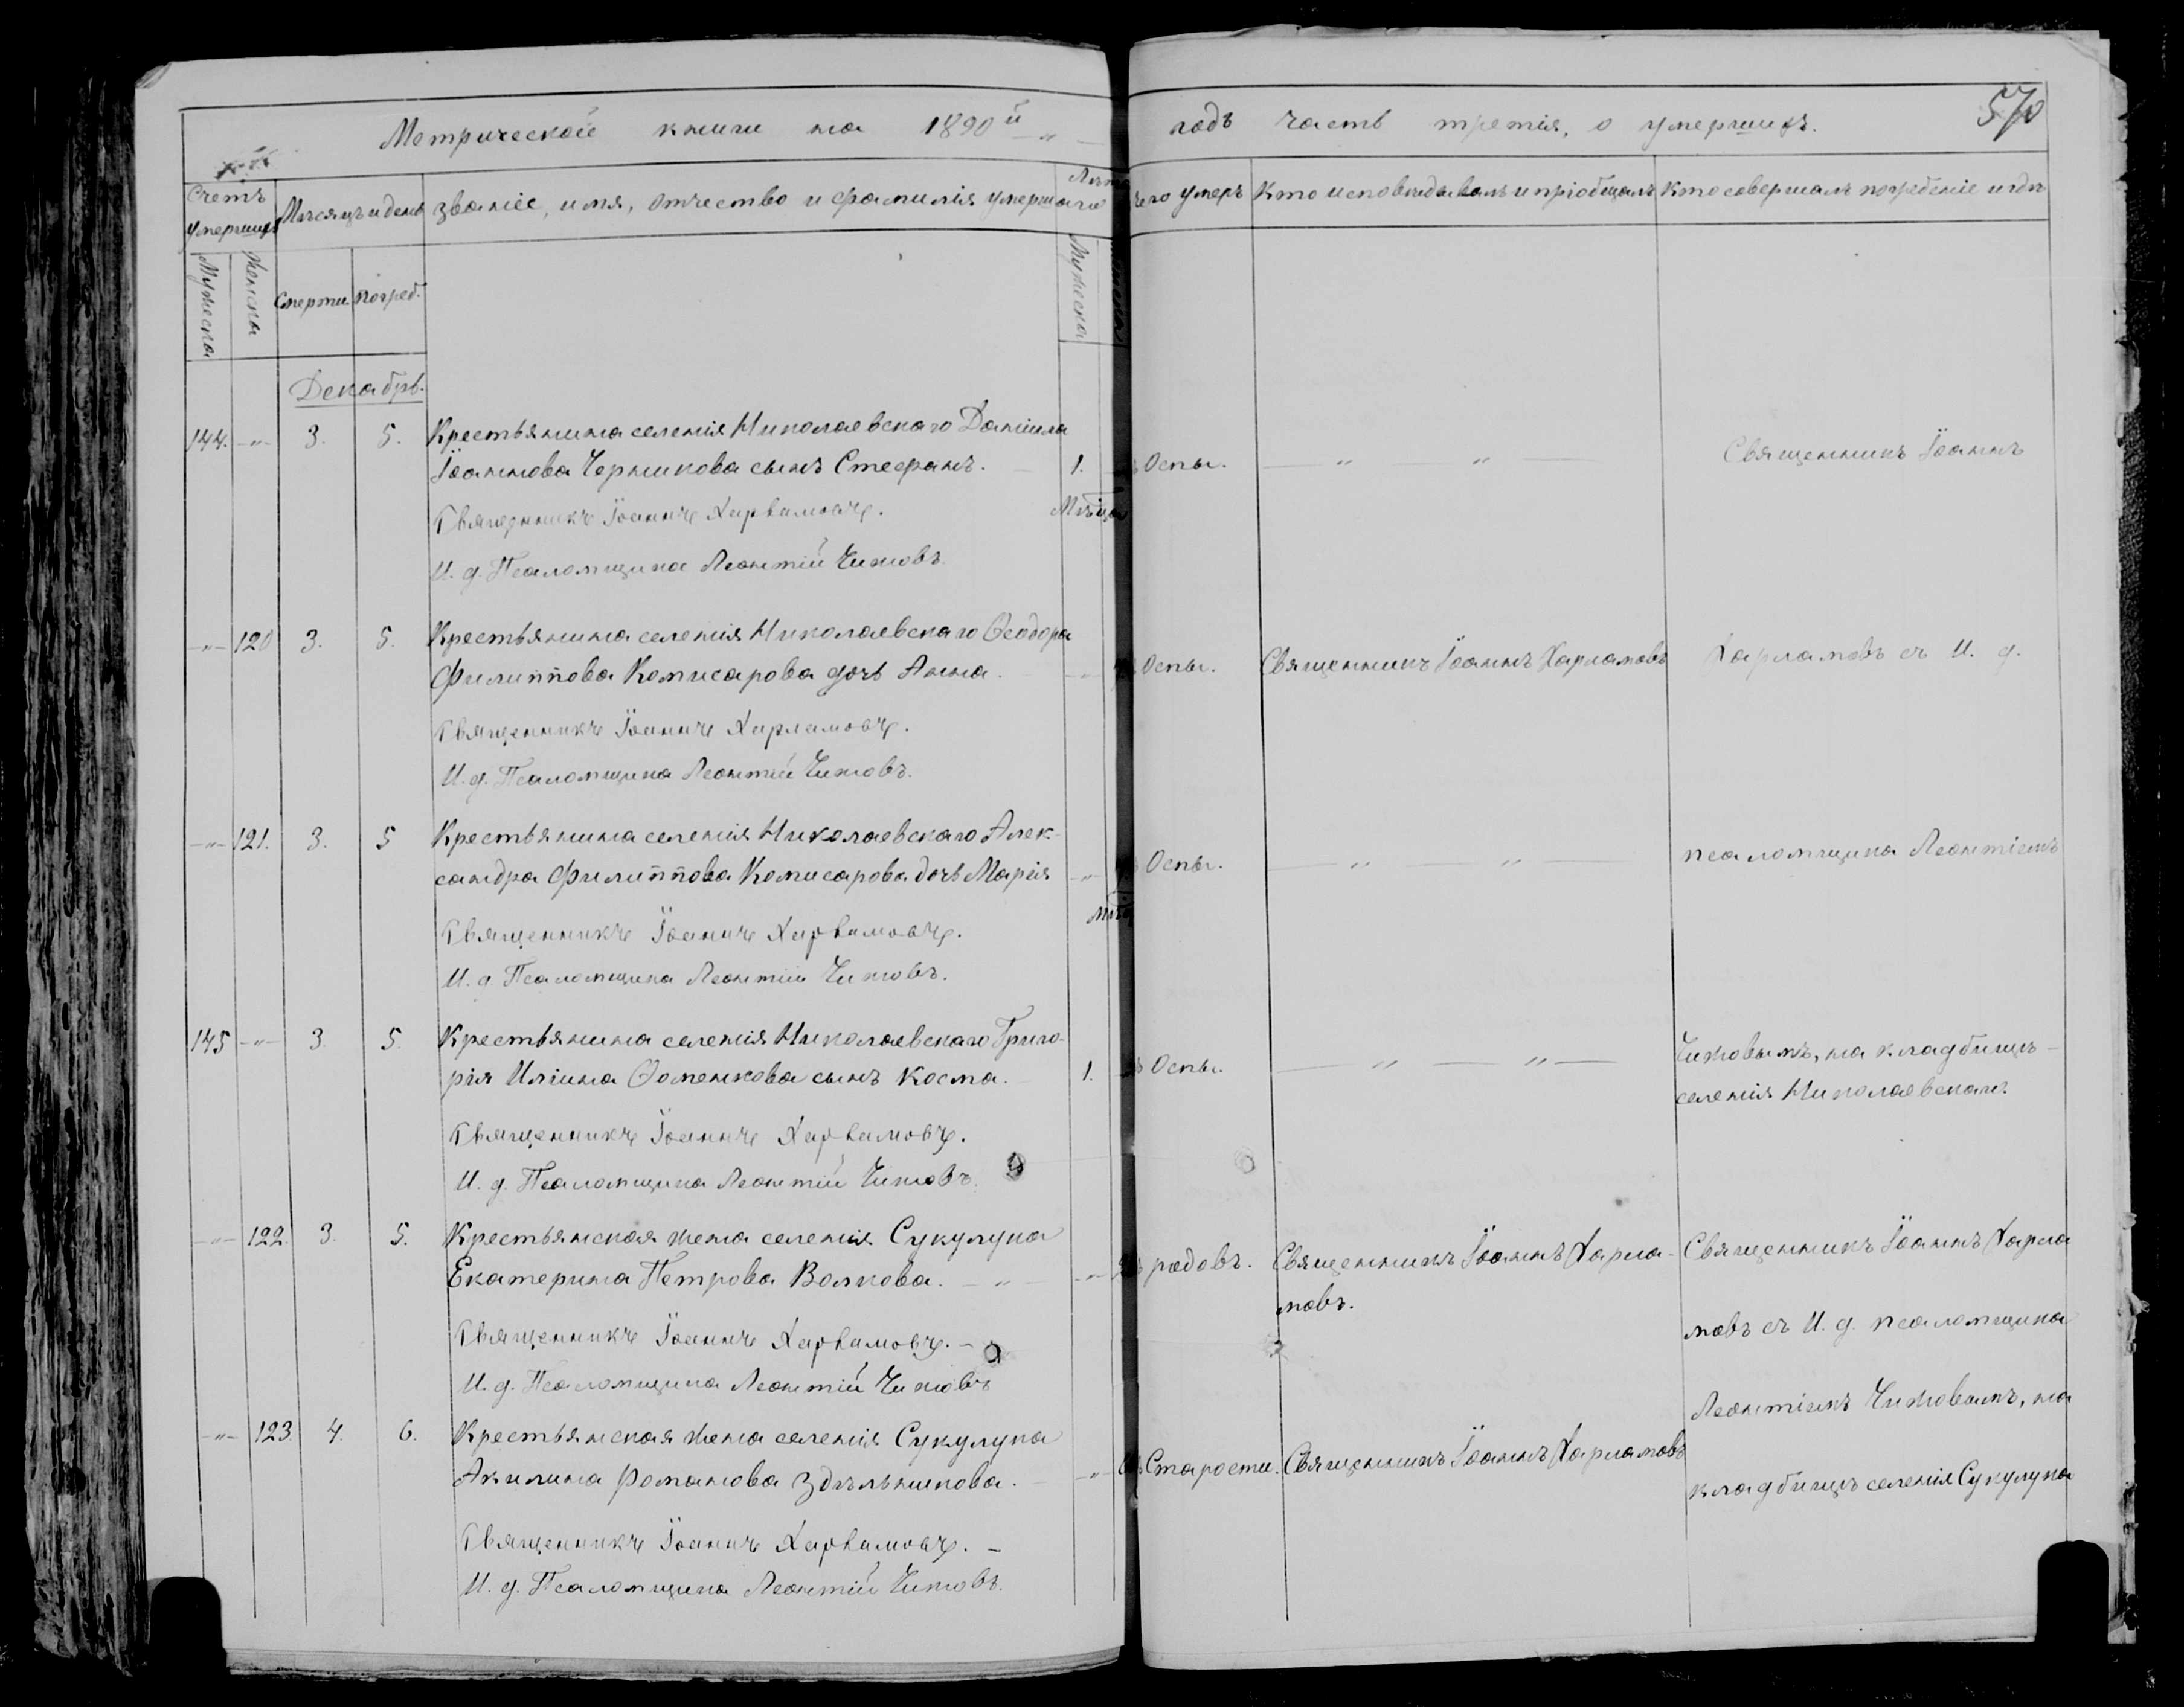 Метрической книги на 1890й
годъ часть третія, о умершихъ.
570
Счетъ умершихъ
Мѣсяцъ и день
званіе, имя, отчество и фамилія умершаго
Лѣта
чего умеръ
Кто исповѣдывалъ и пріобщалъ
Кто совершалъ погребеніе и гдѣ
Мужеска
Женска
Смерти
Погреб.
Мужеска
Декабрь.
144. -„- 3. 5. Крестьянина селенія Николаевскаго Даніила
Іоаннова Черникова сынъ Стефанъ. 1. Оспы. -„- -„- Священникъ Іоаннъ
Мѣсяца
Священникъ Іоаннъ Харламовъ.
И. д. Псаломщика Леонтій Чижовъ.
-„- 120 3. 5. Крестьянина селенія Николаевскаго Ѳеодора
Филиппова Комисарова дочь Анна. Оспы. Священникъ Іоаннъ Харламовъ Харламовъ съ И. д.
Священникъ Іоаннъ Харламовъ.
И. д. Псаломщика Леонтій Чижовъ.
-„- 121. 3. 5 Крестьянина селенія Николаевскаго Алек-
сандра Филиппова Комисарова дочь Марія -„- Оспы. -„- -„- псаломщика Леонтіемъ
Священникъ Іоаннъ Харламовъ.
И. д. Псаломщика Леонтій Чижовъ.
145 -„- 3. 5. Крестьянина селенія Николаевскаго Григо-
рія Иліина Ѳоменкова сынъ Косма. 1. Оспы. -„- -„- Чижовымъ, на кладбищѣ
селенія Николаевскаго.
Священникъ Іоаннъ Харламовъ.
И. д. Псаломщика Леонтій Чижовъ.
-„- 122. 3. 5. Крестьянская жена селенія Сукулука
Екатерина Петрова Волкова. -„- -„- родовъ. Священникъ Іоаннъ Харла-
мовъ.
Священникъ Іоаннъ Харла
мовъ съ И. д. псаломщика
Леонтіемъ Чижовымъ, на
кладбищѣ селенія Сукулука
Священникъ Іоаннъ Харламовъ. -
И. д. Псаломщика Леонтій Чижовъ
-„- 123. 4. 6. Крестьянская жена селенія Сукулука
Акилина Романова Здѣльникова. -„- Старости. Священникъ Іоаннъ Харламовъ
Священникъ Іоаннъ Харламовъ. -
И. д. Псаломщика Леонтій Чижовъ.